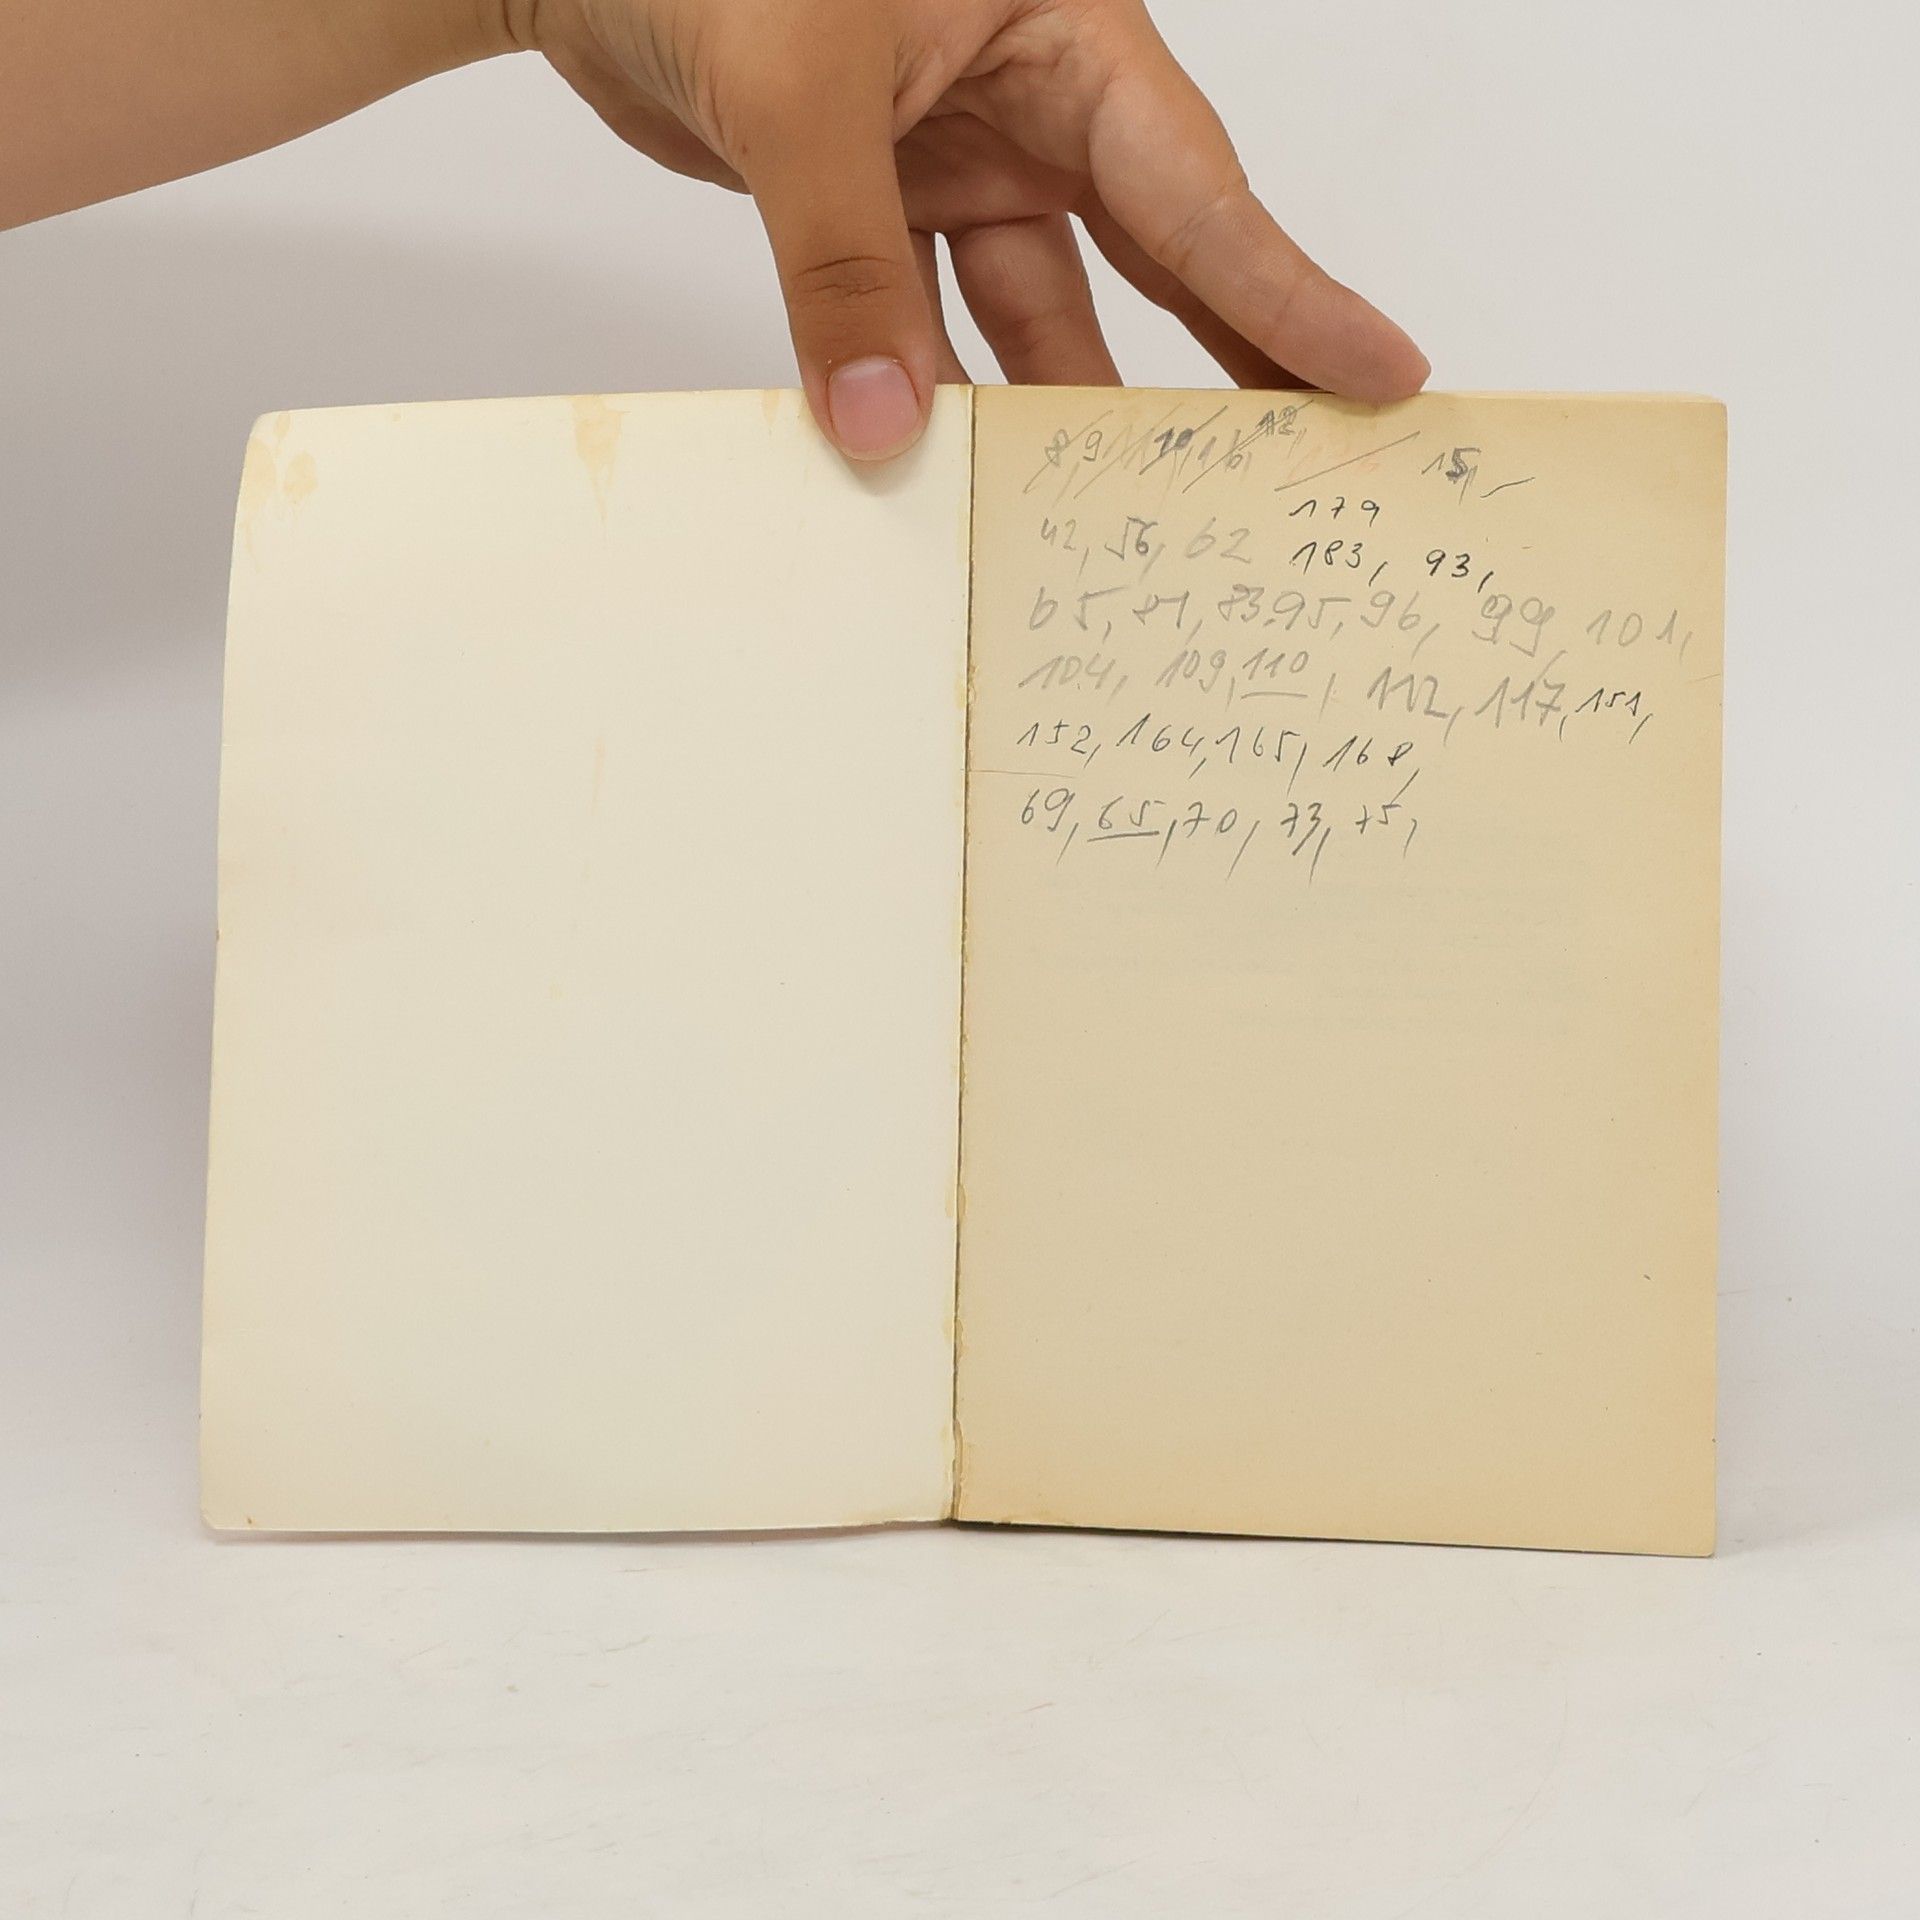 8, 9, 10, 16, 12, 15,
179
42, 56, 62 183, 93,
65, 81, 83, 95, 96, 99, 101,
104, 109, 110, 112, 117, 151,
152, 164, 165, 168,
69, 65, 70, 73, 75,